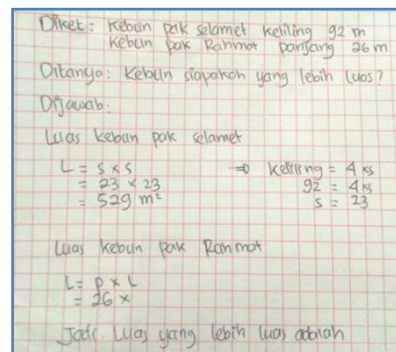 Diket: Kebun pak selamet keliling 92 m
Kebun pak Rahmat panjang 26 m
Ditanya: Kebun siapakah yang lebih luas?
Dijawab:
Luas kebun pak selamet
L = s x s ⇒ keliling = 4 x s
= 23 x 23 92 = 4 x s
= 529 m² s = 23
Luas kebun pak Rahmat
L = p x L
= 26 x
Jadi. Luas yang lebih luas adalah